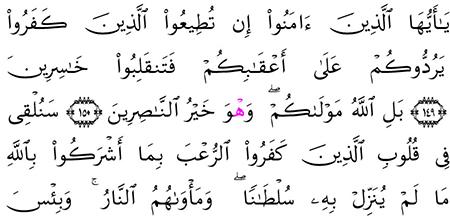 يَـٰٓأَيُّهَا ٱلَّذِينَ ءَامَنُوٓا۟ إِن تُطِيعُوا۟ ٱلَّذِينَ كَفَرُوا۟
يَرُدُّوكُمْ عَلَىٰٓ أَعْقَـٰبِكُمْ فَتَنقَلِبُوا۟ خَـٰسِرِينَ
﴿١٤٩﴾ بَلِ ٱللَّهُ مَوْلَىٰكُمْ ۖ وَهُوَ خَيْرُ ٱلنَّـٰصِرِينَ ﴿١٥٠﴾ سَنُلْقِى
فِى قُلُوبِ ٱلَّذِينَ كَفَرُوا۟ ٱلرُّعْبَ بِمَآ أَشْرَكُوا۟ بِٱللَّهِ
مَا لَمْ يُنَزِّلْ بِهِۦ سُلْطَـٰنًا ۖ وَمَأْوَىٰهُمُ ٱلنَّارُ ۚ وَبِئْسَ